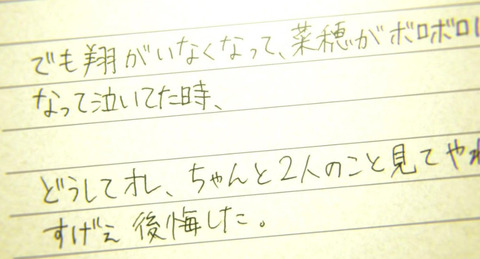 でも翔がいなくなって、菜穂がボロボロに
なって泣いてた時、
どうしてオレ、ちゃんと2人のこと見てやれ
すげぇ後悔した。